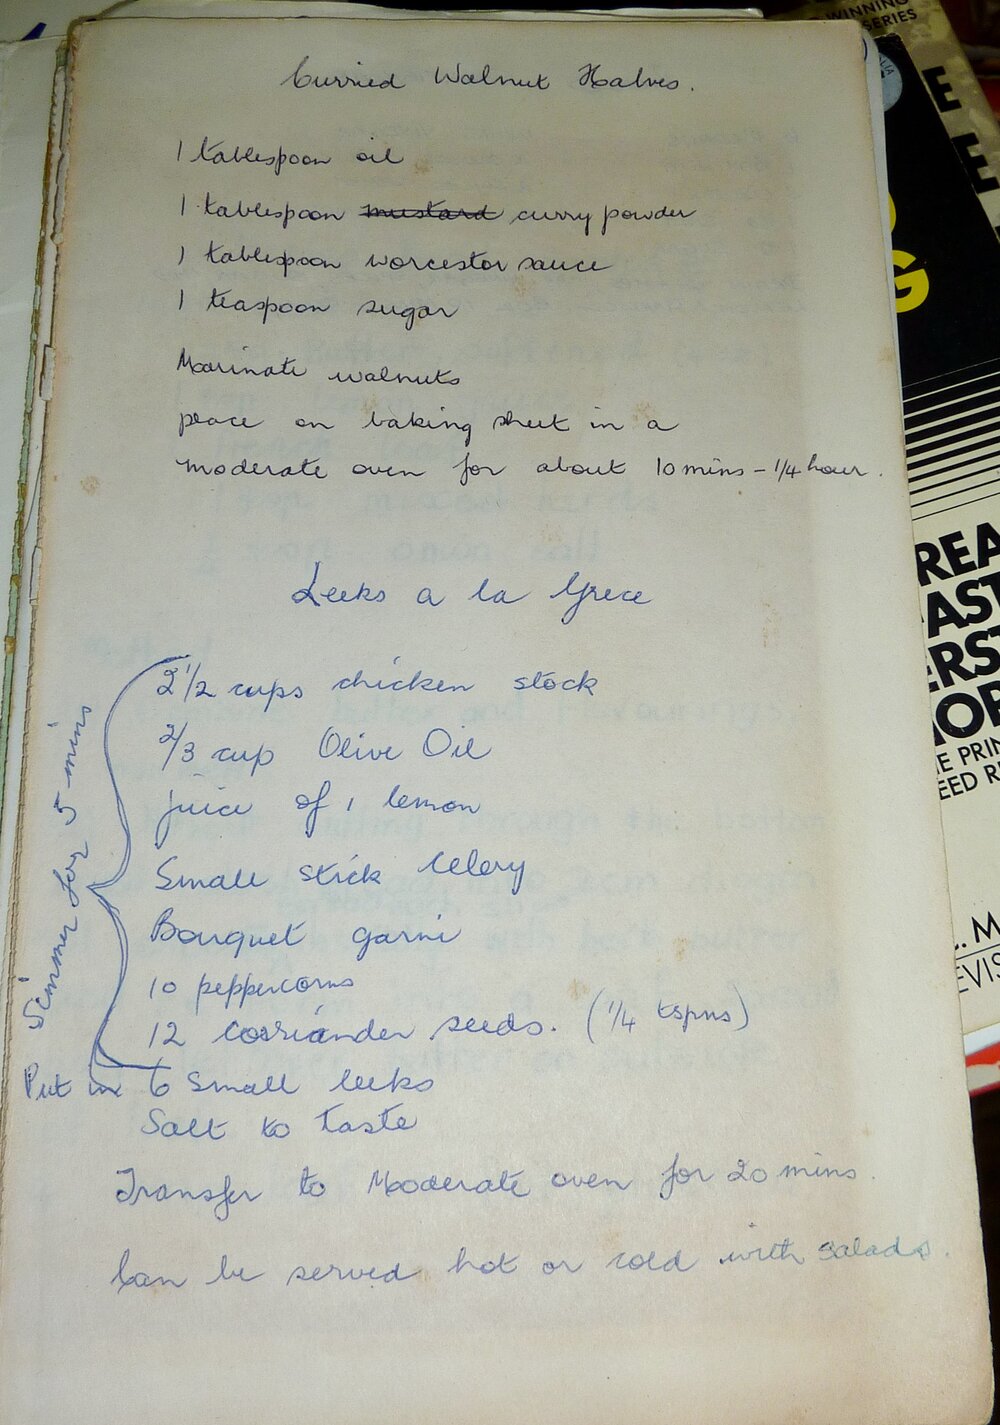 Curried Walnut Halves.
1 tablespoon oil
1 tablespoon mustard curry powder
1 tablespoon worcester sauce
1 teaspoon sugar
Marinate walnuts
place on baking sheet in a
moderate oven for about 10 mins - 1/4 hour.
Leeks a la Grece
2 1/2 cups chicken stock
2/3 cup Olive Oil
juice of 1 lemon
Small stick Celery
Bouquet garni
10 peppercorns
12 corriander seeds. (1/4 tspns)
Simmer for 5 mins
Put in 6 Small leeks
Salt to taste
Transfer to Moderate oven for 20 mins.
Can be served hot or cold with salads.
WINNING
SERIES
E
E
G
REA
AST
ERS
HOR
E PRIN
EED R
. M
EVIS